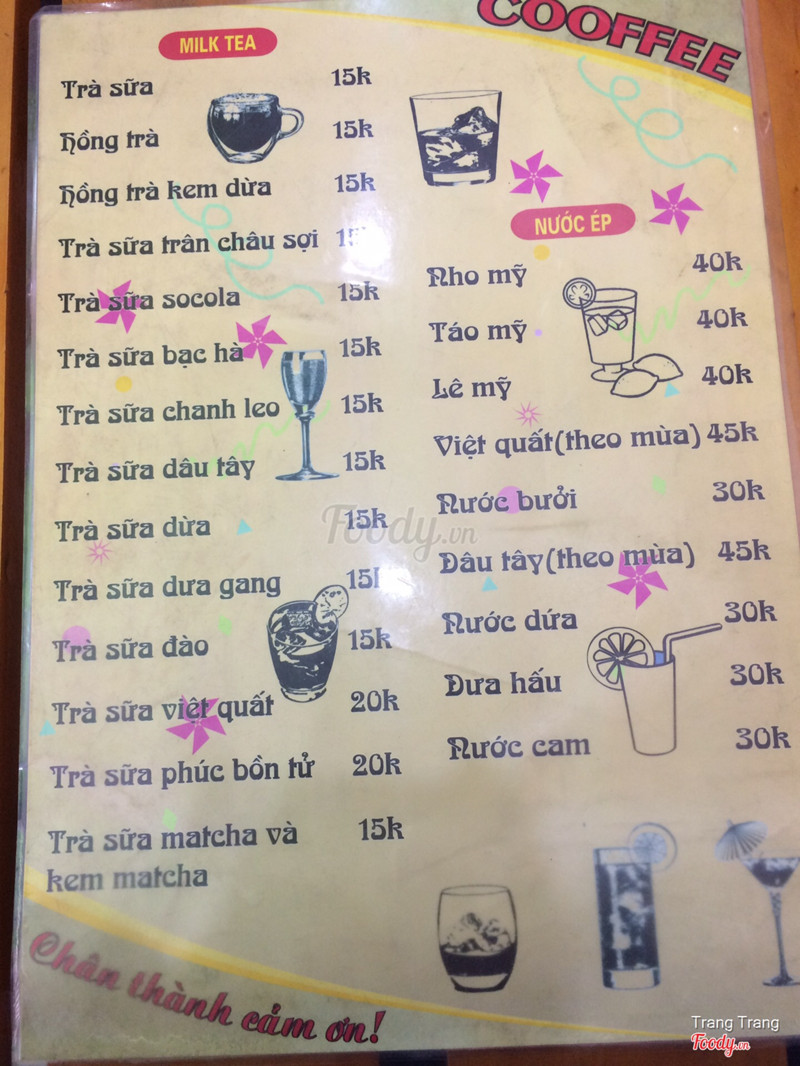 COOFFEE
MILK TEA
Trà sữa 15k
Hồng trà 15k
Hồng trà kem dừa 15k
Trà sữa trân châu sợi
Trà sữa socola 15k
Trà sữa bạc hà 15k
Trà sữa chanh leo 15k
Trà sữa dâu tây 15k
Trà sữa dừa 15k
Trà sữa dưa gang
Trà sữa đào 15k
Trà sữa việt quất 20k
Trà sữa phúc bồn tử 20k
Trà sữa matcha và 15k
kem matcha
NƯỚC ÉP
Nho mỹ 40k
Táo mỹ 40k
Lê mỹ 40k
Việt quất(theo mùa) 45k
Nước bưởi 30k
Dâu tây(theo mùa) 45k
Nước dứa 30k
Dưa hấu 30k
Nước cam 30k
Chân thành cảm ơn!
Foody.vn
Trang Trang
Foody.vn